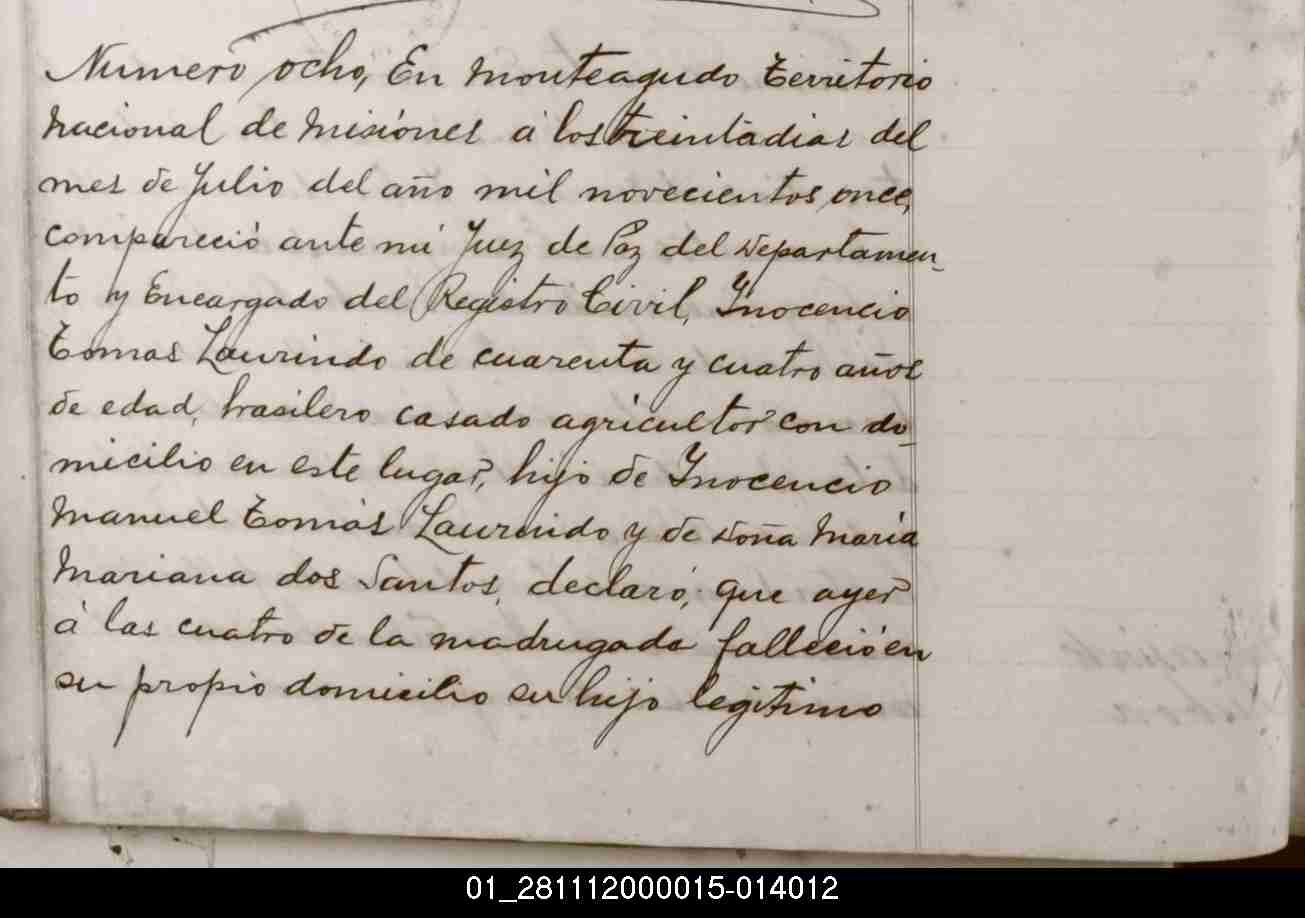 Numero ocho, En Monteagudo Territorio
Nacional de Misiónes á los treinta dias del
mes de Julio del año mil novecientos once,
compareció ante mi Juez de Paz del Departamen-
to y Encargado del Registro Civil, Inocencio
Tomas Laurindo de cuarenta y cuatro años
de edad, brasilero casado agricultor con do-
micilio en este lugar, hijo de Inocencio
Manuel Tomás Laurindo y de Doña Maria
Mariana dos Santos, declaró, que ayer
á las cuatro de la madrugada falleció en
su propio domicilio su hijo legitimo
01_281112000015-014012